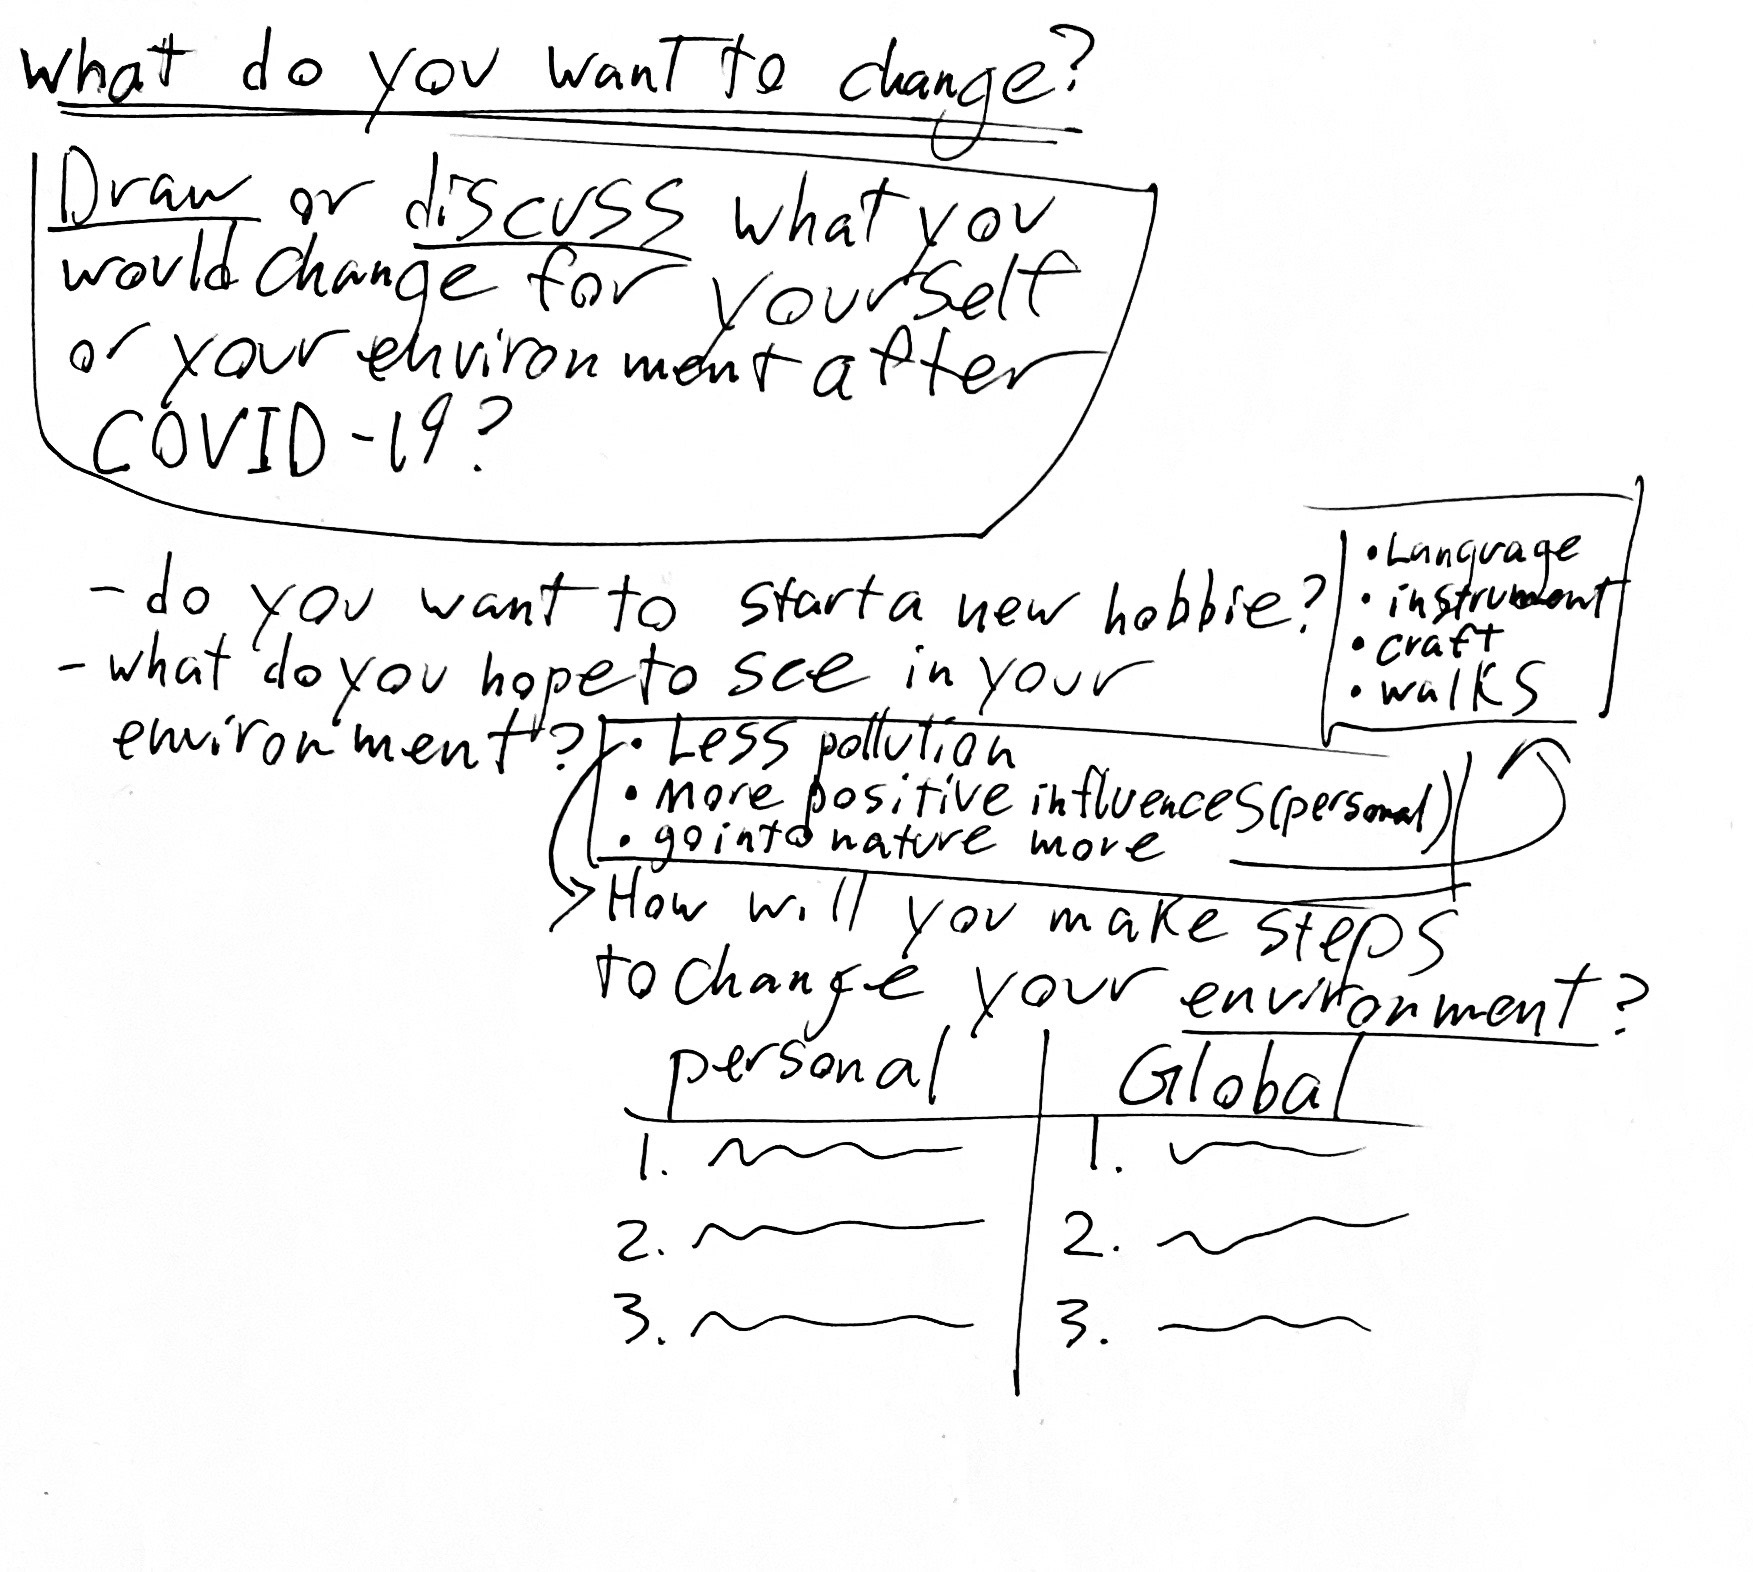 what do you want to change?
Draw or discuss what you
would change for yourself
or your environment after
COVID-19?
- do you want to start a new hobbie?
• Language
• instrument
• craft
• walks
- what do you hope to see in your
environment?
• Less pollution
• More positive influences (personal)
• go into nature more
How will you make steps
to change your environment?
personal Global
1. 1.
2. 2.
3. 3.